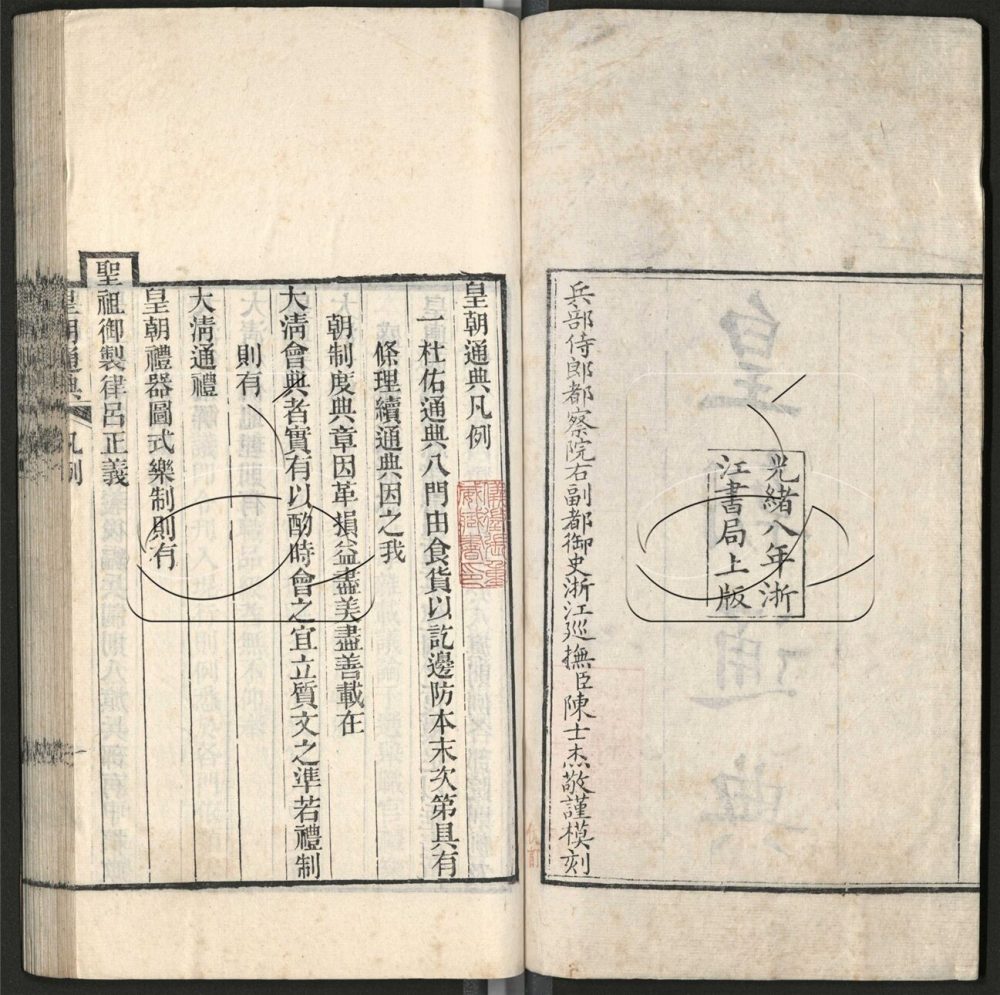 光緒八年浙
江書局上版
兵部侍郎都察院右副都御史浙江巡撫臣陳士杰敬謹模刻
皇朝通典凡例
一杜佑通典八門由食貨以訖邊防本末次第具有
條理續通典因之我
朝制度典章因革損益盡美盡善載在
大淸會典者實有以酌時會之宜立質文之準若禮制
則有
大淸通禮
皇朝禮器圖式樂制則有
聖祖御製律呂正義
皇朝通典 凡例